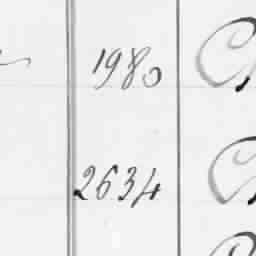 1980
2634